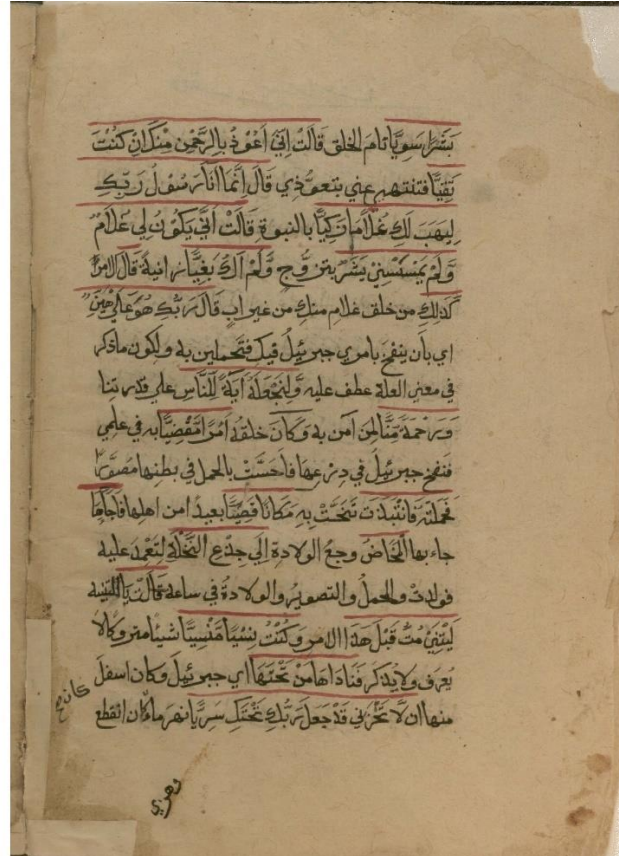 بَشَرًا سَوِيًّا تام الخلق قَالَتْ إِنِّي أَعُوذُ بِالرَّحْمٰنِ مِنْكَ إِنْ كُنْتَ
تَقِيًّا فتنتهي عني بتعوذي قَالَ إِنَّمَا أَنَا رَسُولُ رَبِّكِ
لِيَهَبَ لَكِ غُلَامًا زَكِيًّا بالنبوة قَالَتْ أَنَّى يَكُونُ لِي غُلَامٌ
وَّلَمْ يَمْسَسْنِي بَشَرٌ بتزوج وَّلَمْ أَكُ بَغِيًّا زانية قال الامر
كَذٰلِكِ من خلق غلام منك من غير اب قَالَ رَبُّكِ هُوَ عَلَيَّ هَيِّنٌ
اي بأن ينفخ بامري جبرئيل فيك فتحملين به ولكون ما ذكر
في معنى العلة عطف عليه وَلِنَجْعَلَهُ آيَةً لِّلنَّاسِ علي قدرتنا
وَرَحْمَةً مِّنَّا لمن آمن به وَكَانَ خلقه أَمْرًا مَّقْضِيًّا به في علمي
فنفخ جبرئيل في درعها فاحست بالحمل في بطنها مصورا
فَحَمَلَتْهُ فَانْتَبَذَتْ تنحت بِهِ مَكَانًا قَصِيًّا بعيدا من اهلها فَأَجَاءَهَا
جاء بها الْمَخَاضُ وجع الولادة إِلَى جِذْعِ النَّخْلَةِ لتعمد عليه
فولدت والحمل والتصوير والولادة في ساعة قَالَتْ يَا للتنبيه
لَيْتَنِي مِتُّ قَبْلَ هَذَا الامر وَكُنْتُ نِسْيًا مَّنْسِيًّا شيئا متروكا لا
يعرف ولا يذكر فَنَادَاهَا مَنْ تَحْتَهَا اي جبرئيل وكان اسفل
منها ان لَّا تَحْزَنِي قَدْ جَعَلَ رَبُّكِ تَحْتَكِ سَرِيًّا نهر ماء كان انقطع
وهزي